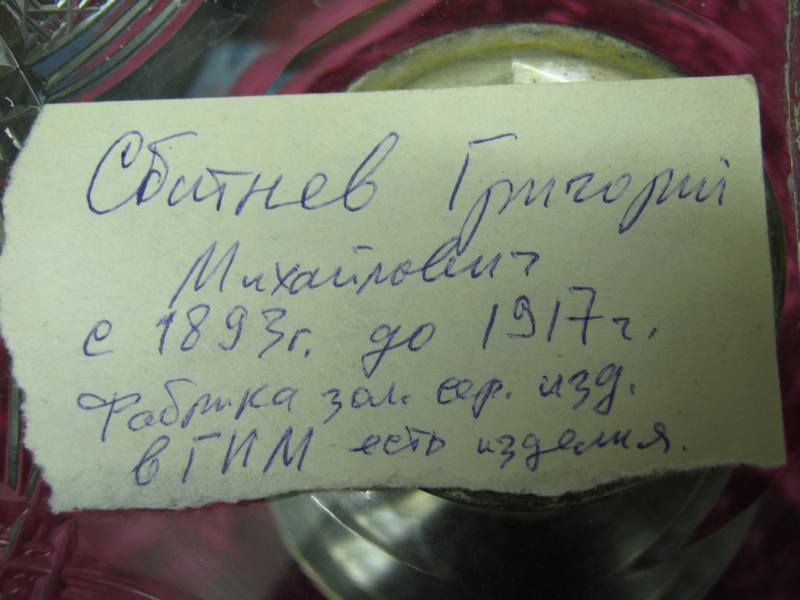 Сбитнев Григорий
Михайлович
с 1893г. до 1917г.
Фабрика зол. сер. изд.
в ГИМ есть изделия.